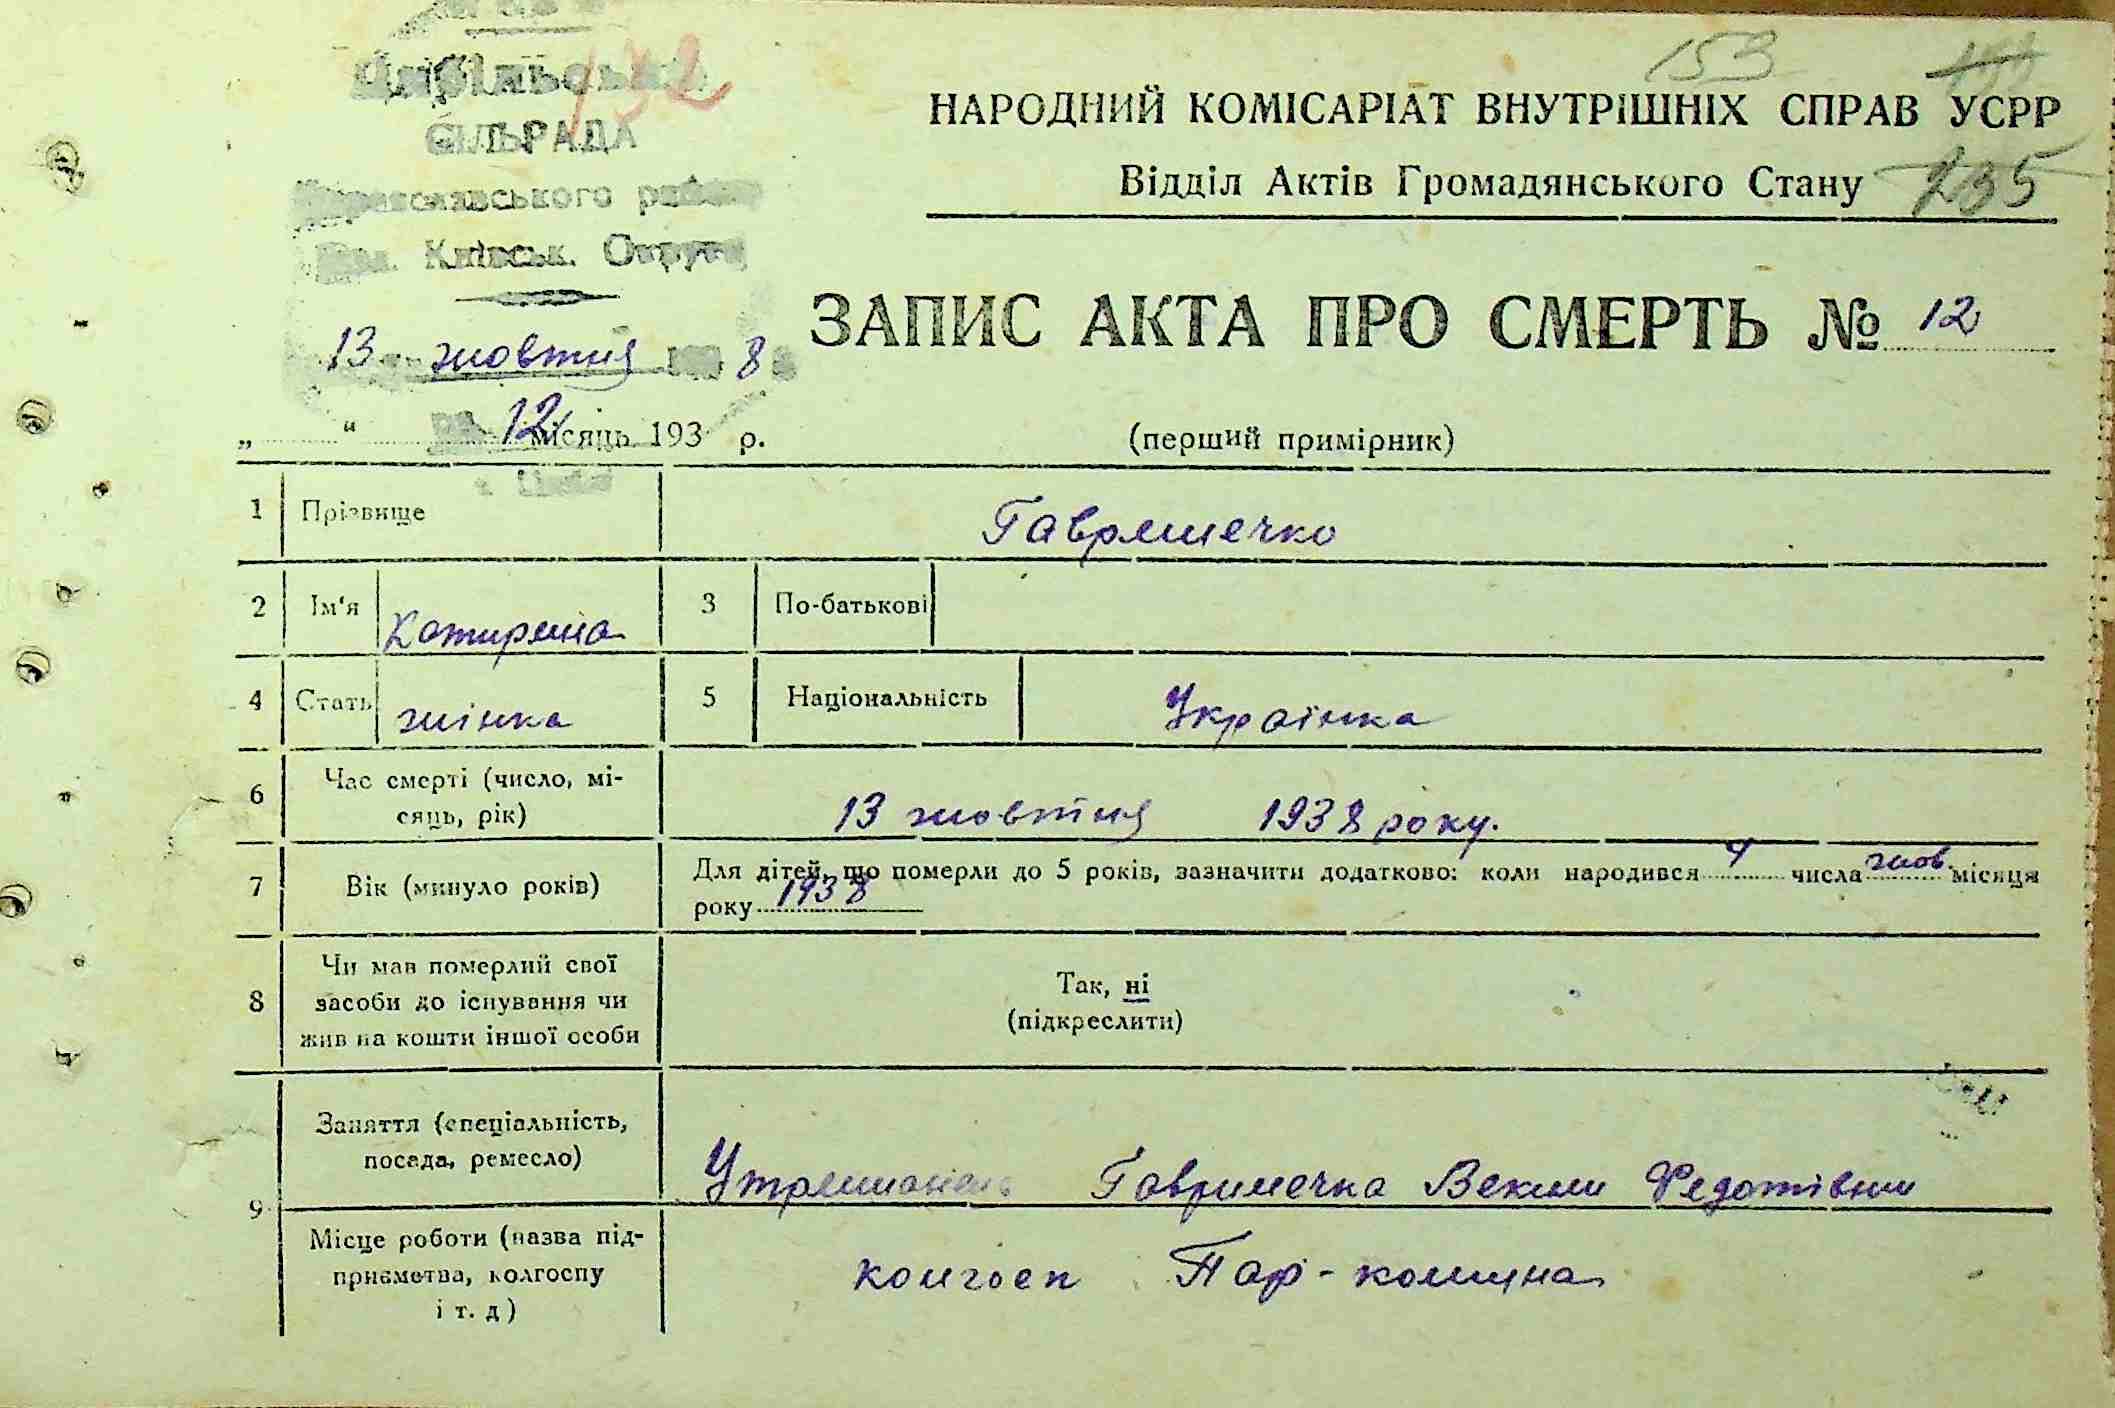 132
СІЛЬРАДА
Київськ. Округи
153
НАРОДНИЙ КОМІСАРІАТ ВНУТРІШНІХ СПРАВ УСРР
Відділ Актів Громадянського Стану 235
ЗАПИС АКТА ПРО СМЕРТЬ № 12
13 жовтня 8
„ “ 12 місяць 193 р.
(перший примірник)
1 Прізвище Гаврилечко
2 Ім'я Катирина 3 По-батькові
4 Стать жінка 5 Національність Українка
6 Час смерті (число, мі-
сяць, рік) 13 жовтня 1938 року.
7 Вік (минуло років) Для дітей, що померли до 5 років, зазначити додатково: коли народився 4 числа жов. місяця
року 1938
8 Чи мав померлий свої
засоби до існування чи
жив на кошти іншої особи
Так, ні
(підкреслити)
9 Заняття (спеціальність,
посада, ремесло) Утриманець Федотівни
Місце роботи (назва під-
приємства, колгоспу
і т. д)
колгосп Пар-комуна